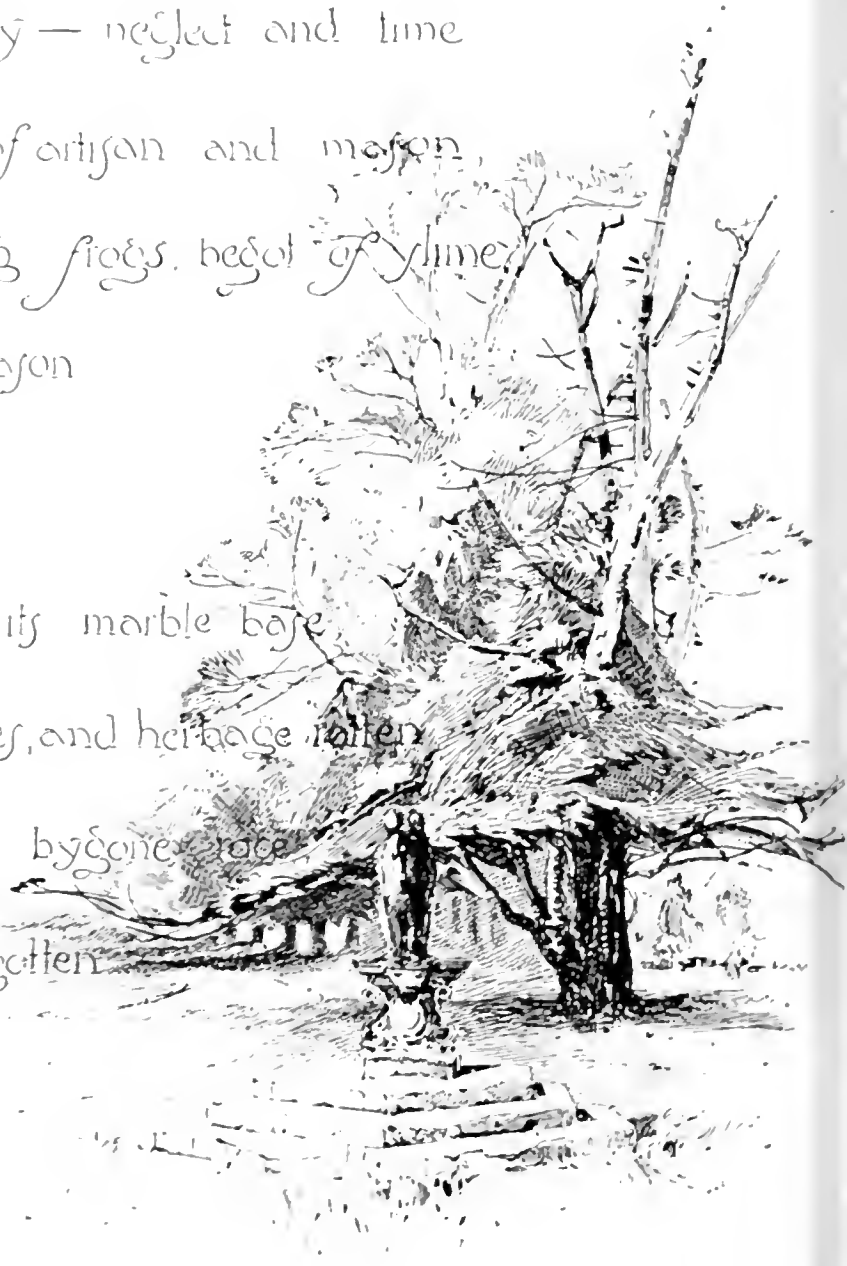 y — neglect and time
of artisan and mason,
frogs, begot of slime
ason
its marble base
es, and herbage rotten
bygone race
gotten